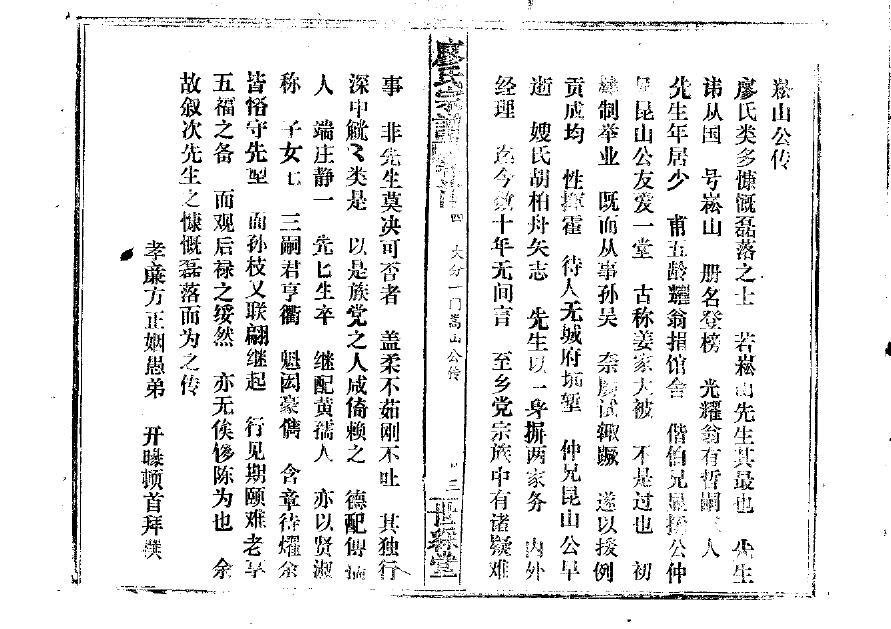 崧山公传
廖氏类多慷慨磊落之士 若崧山先生其最也 先生
讳从国 号崧山 册名登榜 光耀翁有哲嗣三人
先生年居少 甫五龄耀翁捐馆舍 偕伯兄显援公仲
兄昆山公友爱一堂 古称姜家大被 不是过也 初
制举业 既而从事孙吴 奈屡试辄蹶 遂以援例
贡成均 性挥霍 待人无城府垢堑 仲兄昆山公早
逝 嫂氏胡柏舟矢志 先生以一身摒两家务 内外
经理 迄今数十年无间言 至乡党宗族中有诸疑难
廖氏宗谱
四 大分一门嵩山公传
三
世綵堂
事 非先生莫决可否者 盖柔不茹刚不吐 其独行
深中觥觥类是 以是族党之人咸倚赖之 德配傅孺
人 端庄静一 先七生卒 继配黄孺人 亦以贤淑
称 子女七 三嗣君亨衢 魁闳豪儁 含章待燿余
皆恪守先型 而孙枝又联翩继起 行见期颐难老享
五福之备 而观后禄之绥然 亦无俟侈陈为也 余
故叙次先生之慷慨磊落而为之传
孝廉方正姻愚弟 开曒顿首拜撰